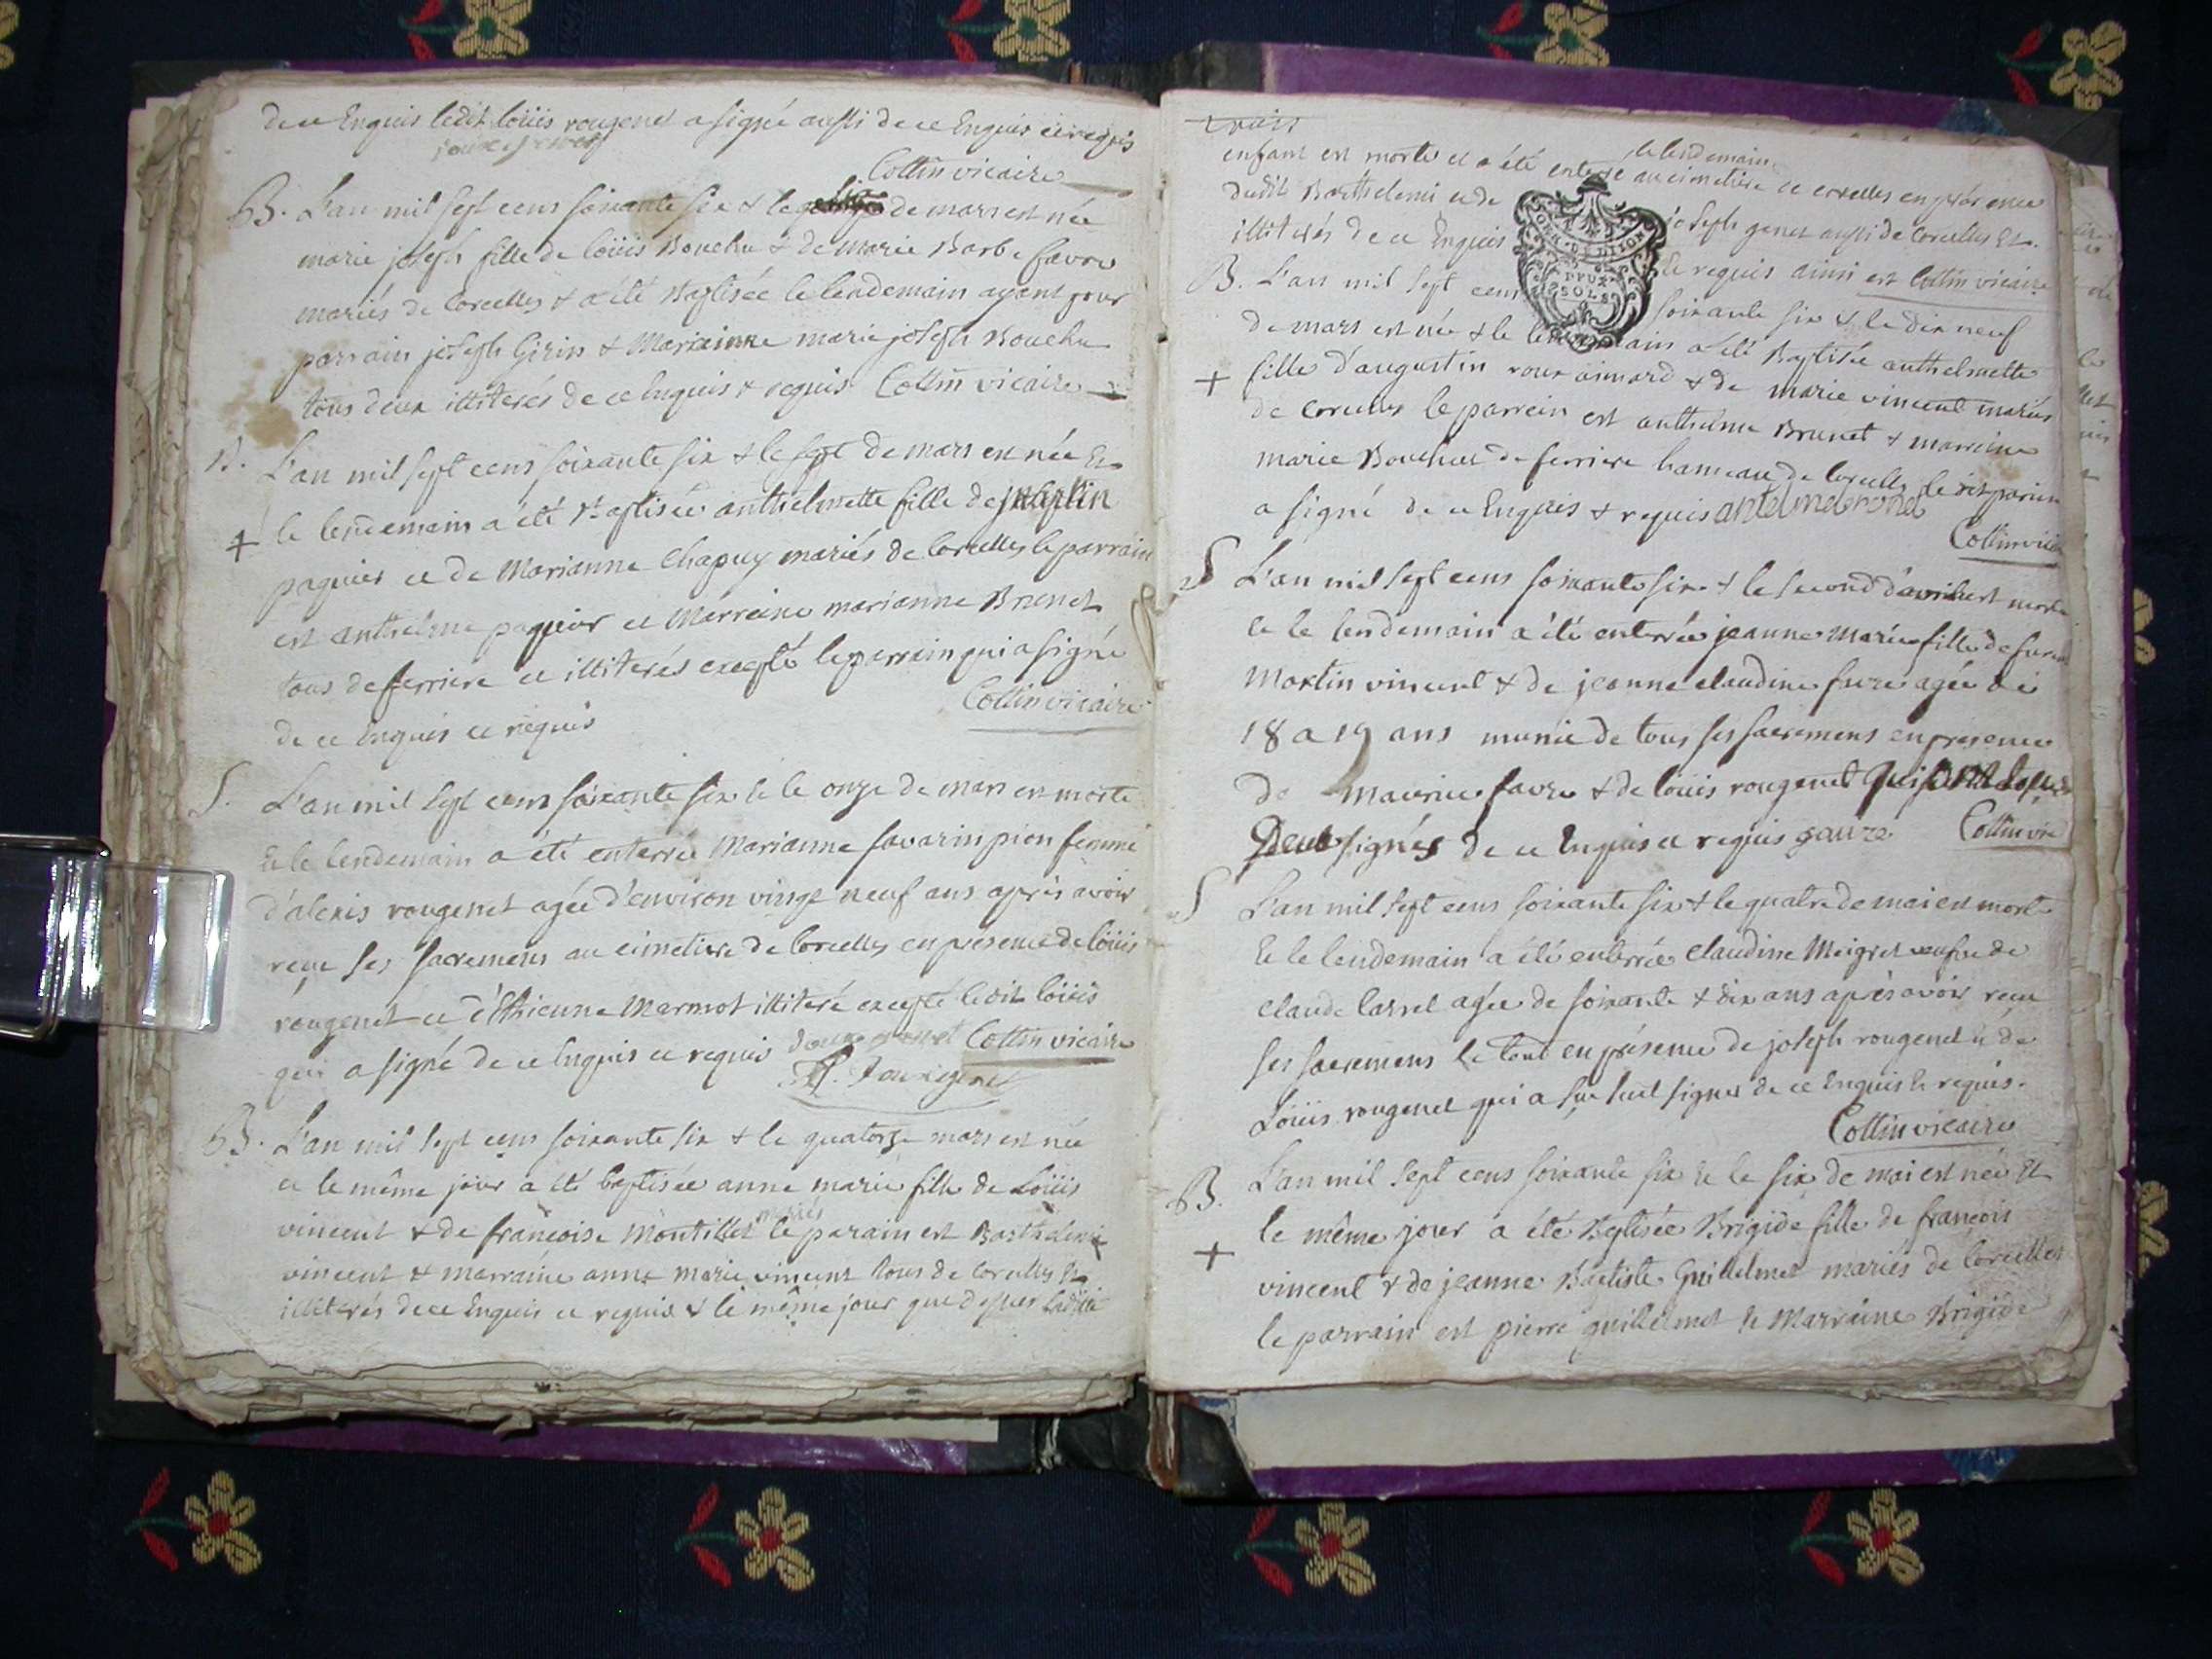 de ce Enquis ledit loüis rougenet a signé aussi de ce Enquis et requis
Collin vicaire
B. L'an mil sept cens soixante six & le de mars est née
marie joseph fille de loüis Bouchu & de marie Barbe favre
mariés de Corcelles & a été Baptisée le lendemain ayant pour
parrain joseph Girin & Marrainne marie joseph Bouchu
tous deux illiterés de ce Enquis & requis Collin vicaire
B. L'an mil sept cens soixante six & le sept de mars est née Et
+ le lendemain a été Baptisée anthelmette fille de
paquier et de Marianne Chapuy mariés de Corcelles le parrain
est anthelme paquier et Marreine marianne Brunet
tous de ferriere et illiterés excepté le parrain qui a signé
de ce Enquis et requis Collin vicaire
S. L'an mil sept cens soixante six Et le onze de mars est morte
Et le lendemain a été enterrée Marianne savarin pion femme
d'alexis rougenet agée d'environ vingt neuf ans après avoir
reçu ses sacremens au cimetiere de Corcelles en presence de loüis
rougenet et d'Ethienne Marmot illiteré excepté ledit loüis
qui a signé de ce Enquis et requis Collin vicaire
B. L'an mil sept cens soixante six & le quatorze mars est née
et le même jour a été baptisée anne marie fille de Loüis
mariés
vincent & de françoise Montillet le parain est Barthelemi
vincent & marraine anne marie vincent tous de Corcelles Et
illiterés de ce Enquis et requis & le même jour que dessus ladite
le lendemain
enfant est morte et a été enterré au cimetiere de corcelles en présence
dudit Barthelemi et de joseph genet aussi de Corcelles Et
illiterés de ce Enquis Et requis ainsi est Collin vicaire
B. L'an mil sept cens soixante six & le dix neuf
de mars est née & le lendemain a été Baptisée anthelmette
+ fille d'augustin roux aimard & de marie vincent mariés
de Corcelles le parrein est anthelme Brunet & marreine
marie Bouchu de ferriere hameau de Corcelles le dit parrein
a signé de ce Enquis & requis
Collin vic
S L'an mil sept cens soixante six & le second d'avril est morte
et le lendemain a été enterrée jeanne Marie fille de
Martin vincent & de jeanne claudine favre agée de
18 a 19 ans munie de tous ses sacremens en presence
de Maurice favre & de loüis rougenet qui
signés de ce Enquis et requis Collin vic
S L'an mil sept cens soixante six & le quatre de mai est morte
Et le lendemain a été enterrée Claudine Meigret veufve de
claude Carrel agée de soixante & dix ans après avoir reçu
ses sacremens Le tout en présence de joseph rougenet et de
Loüis rougenet qui a seul signer de ce Enquis Et requis.
Collin vicaire
B. L'an mil sept cens soixante six Et le six de mai est née Et
+ le même jour a été Baptisée Brigide fille de françois
vincent & de jeanne Baptiste Guillelmet mariés de Corcelles
le parrain est pierre guillelmet Et Marraine Brigide